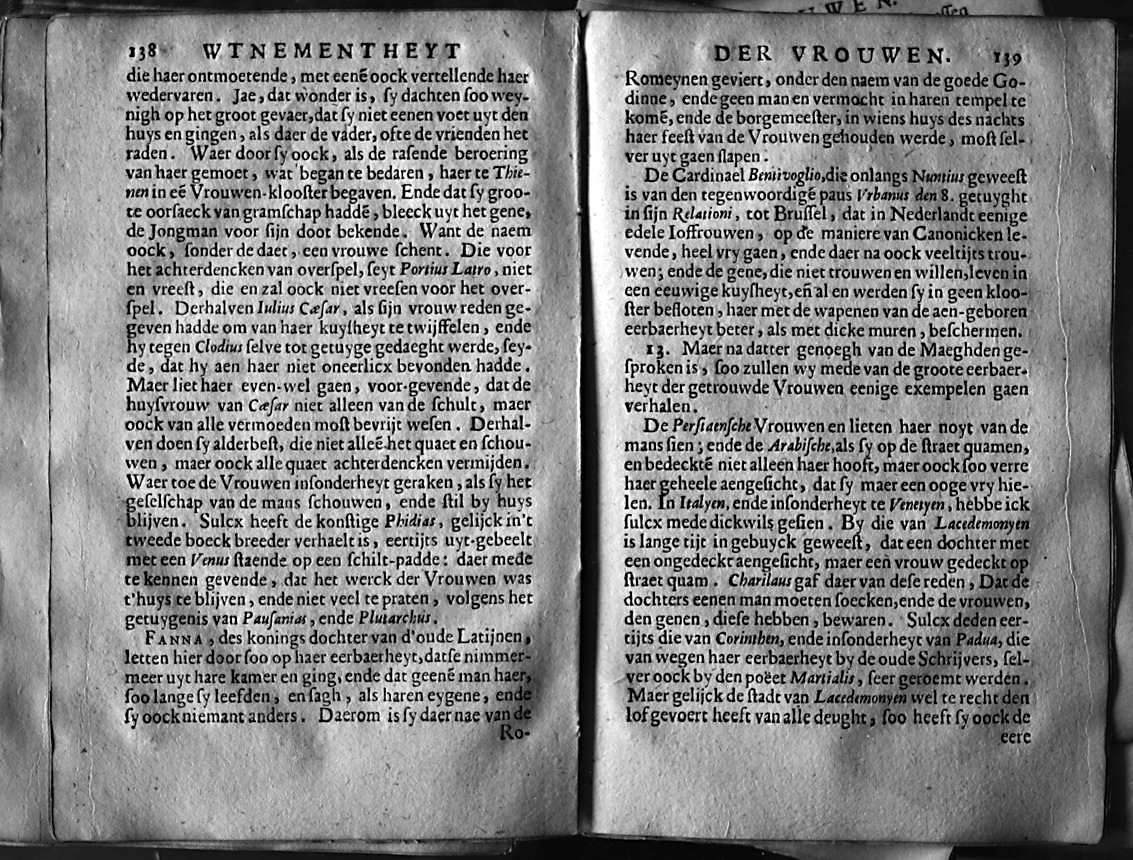 138 WTNEMENTHEYT
die haer ontmoetende, met eenē oock vertellende haer
wedervaren. Jae, dat wonder is, ſy dachten ſoo wey-
nigh op het groot gevaer, dat ſy niet eenen voet uyt den
huys en gingen, als daer de vader, ofte de vrienden het
raden. Waer door ſy oock, als de raſende beroering
van haer gemoet, wat began te bedaren, haer te Thie-
nen in eē Vrouwen-klooſter begaven. Ende dat ſy groo-
te oorſaeck van gramſchap haddē, bleeck uyt het gene,
de Jongman voor ſijn doot bekende. Want de naem
oock, ſonder de daet, een vrouwe ſchent. Die voor
het achterdencken van overſpel, ſeyt Portius Latro, niet
en vreeſt, die en zal oock niet vreeſen voor het over-
ſpel. Derhalven Iulius Cæſar, als ſijn vrouw reden ge-
geven hadde om van haer kuyſheyt te twijffelen, ende
hy tegen Clodius ſelve tot getuyge gedaeght werde, ſey-
de, dat hy aen haer niet oneerlicx bevonden hadde.
Maer liet haer even-wel gaen, voor-gevende, dat de
huyſvrouw van Cæſar niet alleen van de ſchult, maer
oock van alle vermoeden moſt bevrijt weſen. Derhal-
ven doen ſy alderbeſt, die niet alleē het quaet en ſchou-
wen, maer oock alle quaet achterdencken vermijden.
Waer toe de Vrouwen inſonderheyt geraken, als ſy het
geſelſchap van de mans ſchouwen, ende ſtil by huys
blijven. Sulcx heeft de konſtige Phidias, gelijck in't
tweede boeck breeder verhaelt is, eertijts uyt-gebeelt
met een Venus ſtaende op een ſchilt-padde: daer mede
te kennen gevende, dat het werck der Vrouwen was
t'huys te blijven, ende niet veel te praten, volgens het
getuygenis van Pauſanias, ende Plutarchus.
FANNA, des konings dochter van d'oude Latijnen,
letten hier door ſoo op haer eerbaerheyt, datſe nimmer-
meer uyt hare kamer en ging, ende dat geenē man haer,
ſoo lange ſy leefden, en ſagh, als haren eygene, ende
ſy oock niemant anders. Daerom is ſy daer nae van de
Ro-
DER VROUWEN. 139
Romeynen geviert, onder den naem van de goede Go-
dinne, ende geen man en vermocht in haren tempel te
komē, ende de borgemeeſter, in wiens huys des nachts
haer feeſt van de Vrouwen gehouden werde, moſt ſel-
ver uyt gaen ſlapen.
De Cardinael Bentivoglio, die onlangs Nuntius geweeſt
is van den tegenwoordigē paus Vrbanus den 8. getuyght
in ſijn Relationi, tot Bruſſel, dat in Nederlandt eenige
edele Ioffrouwen, op de maniere van Canonicken le-
vende, heel vry gaen, ende daer na oock veeltijts trou-
wen; ende de gene, die niet trouwen en willen, leven in
een eeuwige kuyſheyt, eñ al en werden ſy in geen kloo-
ſter beſloten, haer met de wapenen van de aen-geboren
eerbaerheyt beter, als met dicke muren, beſchermen.
13. Maer na datter genoegh van de Maeghden ge-
ſproken is, ſoo zullen wy mede van de groote eerbaer-
heyt der getrouwde Vrouwen eenige exempelen gaen
verhalen.
De Perſiaenſche Vrouwen en lieten haer noyt van de
mans ſien; ende de Arabiſche, als ſy op de ſtraet quamen,
en bedecktē niet alleen haer hooft, maer oock ſoo verre
haer geheele aengeſicht, dat ſy maer een ooge vry hie-
len. In Italyen, ende inſonderheyt te Venetyen, hebbe ick
ſulcx mede dickwils geſien. By die van Lacedemonyen
is lange tijt in gebuyck geweeſt, dat een dochter met
een ongedeckt aengeſicht, maer een vrouw gedeckt op
ſtraet quam. Charilaus gaf daer van deſe reden, Dat de
dochters eenen man moeten ſoecken, ende de vrouwen,
den genen, dieſe hebben, bewaren. Sulcx deden eer-
tijts die van Corinthen, ende inſonderheyt van Padua, die
van wegen haer eerbaerheyt by de oude Schrijvers, ſel-
ver oock by den poëet Martialis, ſeer geroemt werden.
Maer gelijck de ſtadt van Lacedemonyen wel te recht den
lof gevoert heeft van alle deught, ſoo heeft ſy oock de
eere